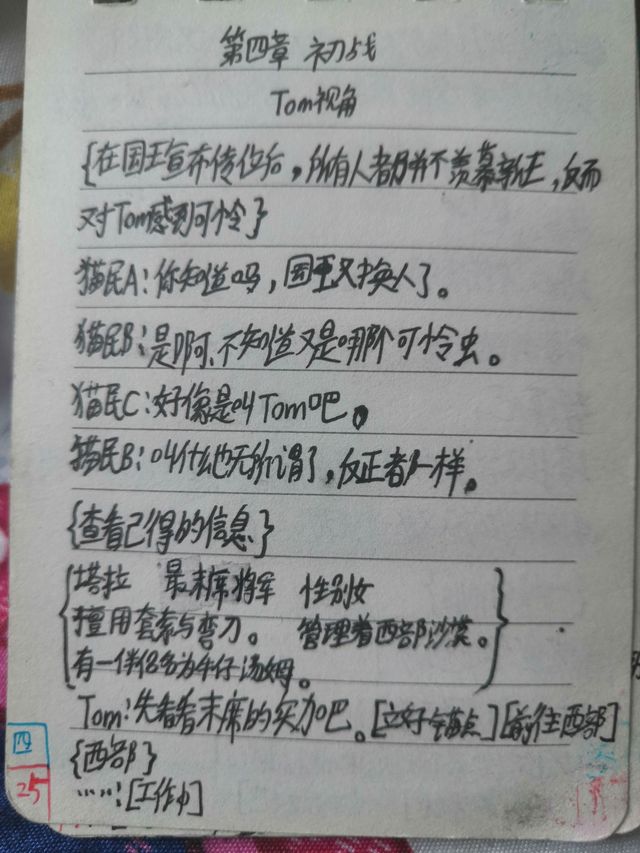 第四章 初战
Tom视角
{在国王宣布传位后,所有人都并不羡慕新王,反而
对Tom感到可怜}
猫民A:你知道吗,国王又换人了。
猫民B:是啊,不知道又是哪个可怜虫。
猫民C:好像是叫Tom吧。
猫民B:叫什么也无所谓了,反正都一样。
{查看已得的信息}
塔拉 最末席将军 性别女
擅用套索与弯刀。 管理着西部沙漠。
有一伴侣名为牛仔汤姆。
Tom:先看看末席的实力吧。[立好锚点][前往西部]
{西部}
……:[工作中]
四
25